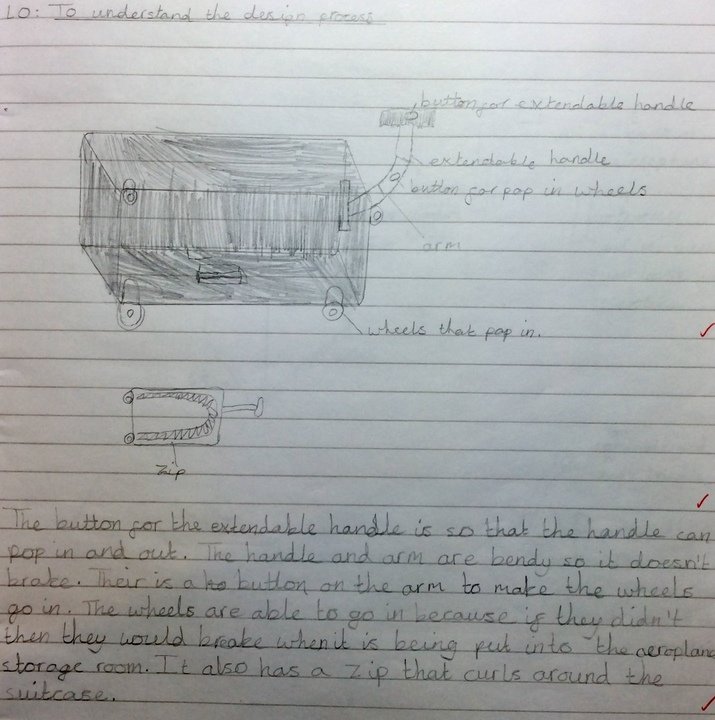 LO: To understand the design process
button for extendable handle
extendable handle
button for pop in wheels
arm
wheels that pop in.
Zip
The button for the extendable handle is so that the handle can
pop in and out. The handle and arm are bendy so it doesn't
brake. Their is a button on the arm to make the wheels
go in. The wheels are able to go in because if they didn't
then they would brake when it is being put into the aeroplane
storage room. It also has a zip that curls around the
suitcase.